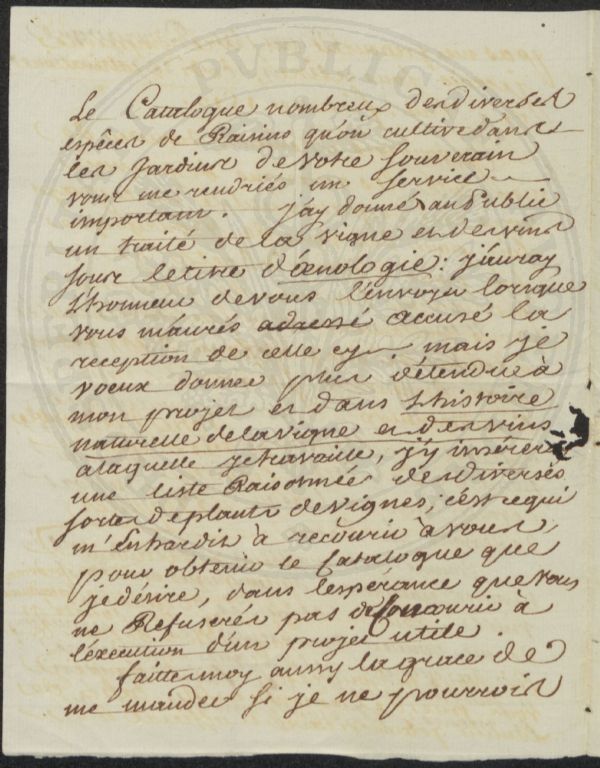 PUBLIC
Le Catalogue nombreux des diverses
espêces de Raisins qu'on cultive dans
les Jardins de votre Souverain
vous me rendriés un service
important. J'ay donné au Public
un traité de la vigne et des vins
sous le titre d'œnologie: j'auray
L'honneur de vous l'envoyer lorsque
vous m'aurés adressé accusé la
reception de celle cy mais je
voeux donner plus d'étendue à
mon projet et dans L'histoire
naturelle de la vigne et des vins
a laquelle je travaille, j'y insérerai
une liste Raisonnée des diverses
sortes de plants de vignes; c'est ce qui
m'Enhardit à recourir à vous
pour obtenir le Catalogue que
je désire, dans l'espérance que vous
ne Refuserés pas de Concourir à
l'éxécution d'un projet utile.
faittes moy aussy la grace de
me mander si je ne pourrois